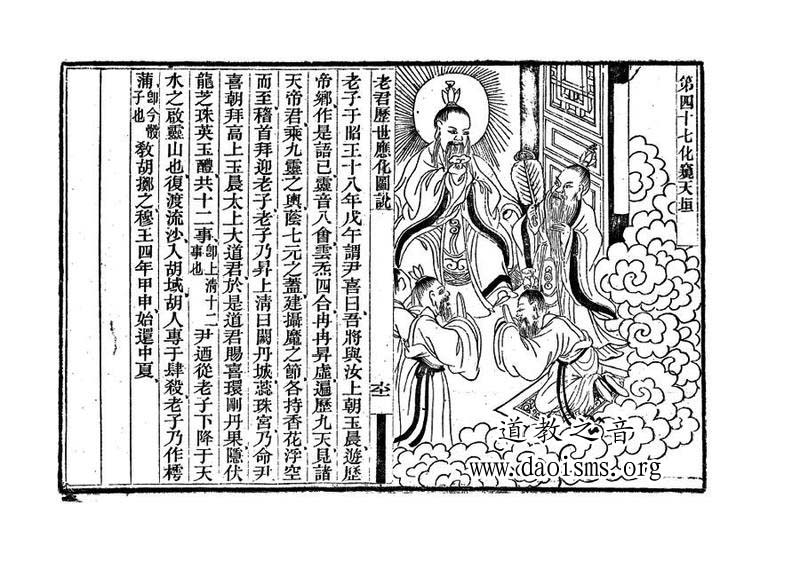 第四十七化窺天垣
老君歷世應化圖說
老子于昭王十八年戊午謂尹喜曰吾將與汝上朝玉晨遊歷
帝鄉作是語已靈音八會雲炁四合冉冉昇虛遍歷九天見諸
天帝君乘九靈之輿蔭七元之蓋建攝魔之節各持香花浮空
而至稽首拜迎老子老子乃昇上清日闕丹城蕊珠宮乃命尹
喜朝拜高上玉晨太上大道君於是道君賜喜環剛丹果隱伏
龍芝珠英玉醴共十二事卽上清十二事也尹迺從老子下降于天
水之啟靈山也復渡流沙入胡域胡人專于肆殺老子乃作樗
蒲卽今骰子也教胡擲之穆王四年甲申始還中夏
道教之音
www.daoisms.org